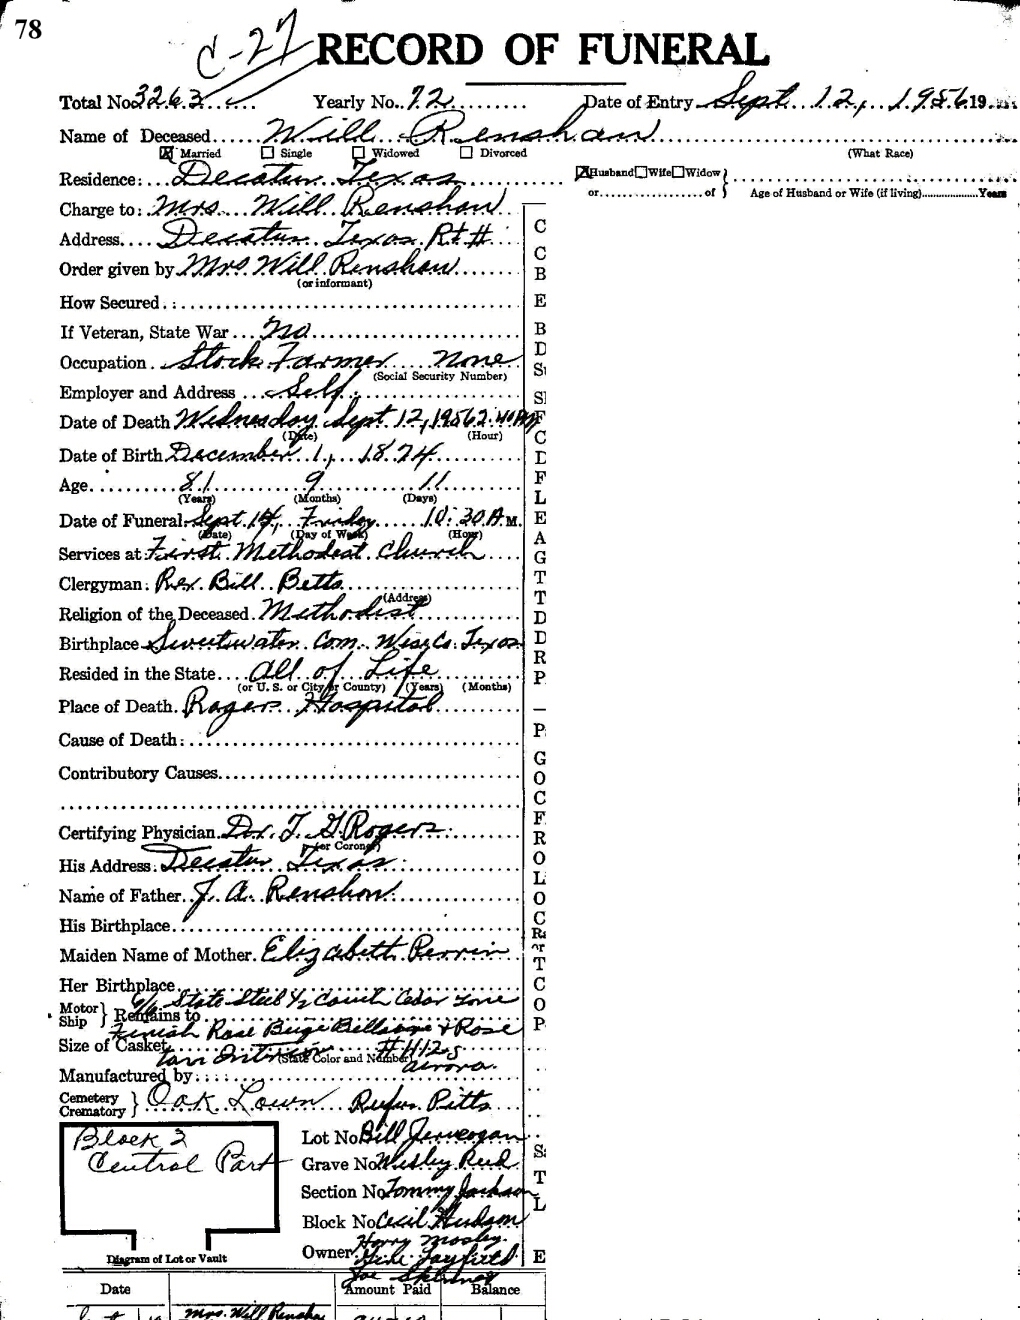 78
C-27 RECORD OF FUNERAL
Total No. 3263 Yearly No. 72 Date of Entry Sept. 12, 1956 19
Name of Deceased Will Renshaw
☒ Married ☐ Single ☐ Widowed ☐ Divorced (What Race)
Residence: Decatur Texas ☒ Husband ☐ Wife ☐ Widow }
or of } Age of Husband or Wife (if living) Years
Charge to: Mrs. Will Renshaw
Address Decatur Texas Rt #
Order given by Mrs Will Renshaw
(or informant)
How Secured
If Veteran, State War no
Occupation Stock Farmer none
(Social Security Number)
Employer and Address Self
Date of Death Wednesday Sept. 12, 1956 2:40 AM
(Date) (Hour)
Date of Birth December 1, 1874
Age 81 9 11
(Years) (Months) (Days)
Date of Funeral Sept. 14, Friday 10:30 A M.
(Date) (Day of Week) (Hour)
Services at First Methodist Church
Clergyman: Rev. Bill Betts
(Address)
Religion of the Deceased Methodist
Birthplace Sweetwater Com. Wise Co. Texas
Resided in the State All of Life
(or U. S. or City or County) (Years) (Months)
Place of Death Rogers Hospital
Cause of Death:
Contributory Causes
Certifying Physician Dr. T. G. Rogers
(or Coroner)
His Address: Decatur Texas
Name of Father J. A. Renshaw
His Birthplace
Maiden Name of Mother Elizabeth Perrin
Her Birthplace
6/6 State Steel 1/2 Couch Cedar Tone
Motor Ship } Remains to
Finish Rose Beige & Rose
Size of Casket
tan Interior (State Color and Number) #4112 S
Manufactured by: Aurora
Cemetery Crematory } Oak Lawn Rufus Pitts
Block 2 Lot No. Bill
Central Part Grave No. Wesley Reed
Section No. Tommy Jackson
Block No. Cecil Hudson
Harry Mosley
Owner Gene Fayfield
Diagram of Lot or Vault
Joe Skinner
Date Amount Paid Balance
Mrs. Will Renshaw